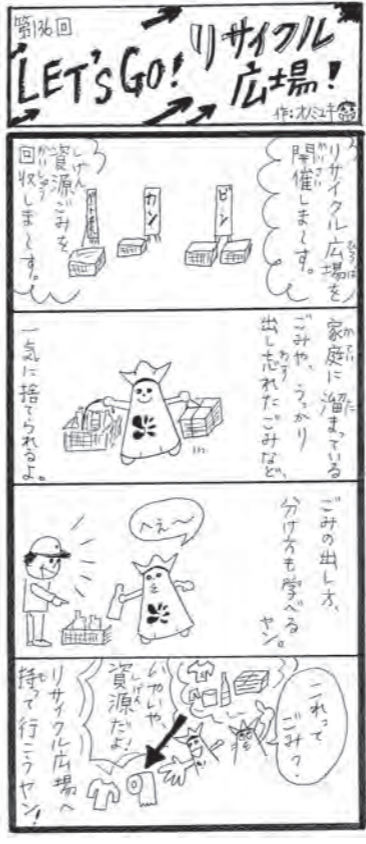 第136回
LET'S GO!
リサイクル
広場!
リサイクル広場を
開催しま～す。
ビン
カン
資源ごみを
回収しま～す。
家庭に溜まっている
ごみや、うっかり
出し忘れたごみなど、
一気に捨てられるよ。
ごみの出し方、
分け方も学べる
ヤン。
へぇ～
これって
ごみ?
いやいや、
資源だよ!
リサイクル広場へ
持って行こうヤン!